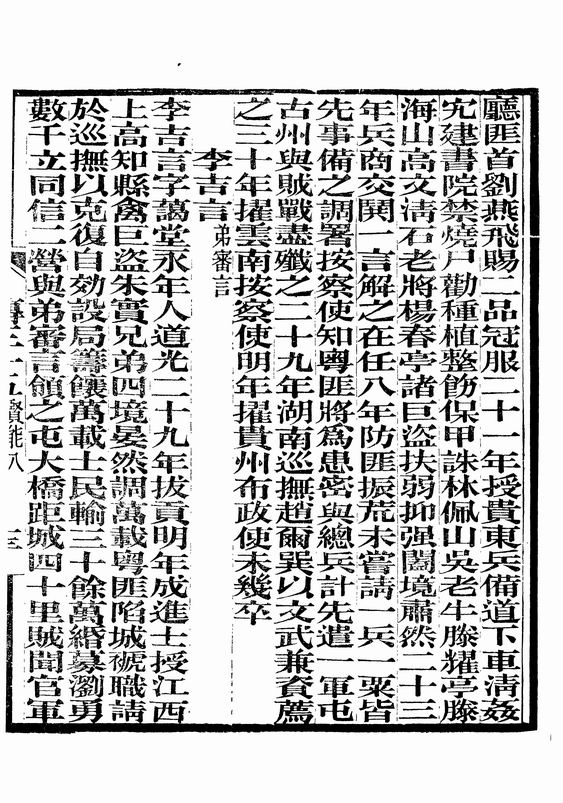 廳匪首劉燕飛賜二品冠服二十一年授貴東兵備道下車清姦
宄建書院禁燒尸勸種植整飭保甲誅林佩山吳老牛滕耀亭滕
海山高文淸石老將楊春亭諸巨盜扶弱抑强闔境肅然二十三
年兵商交鬨一言解之在任八年防匪振荒未嘗請一兵一粟皆
先事備之調署按察使知粵匪將爲患密與總兵計先遣一軍屯
古州與賊戰盡殲之二十九年湖南巡撫趙爾巽以文武兼資薦
之三十年擢雲南按察使明年擢貴州布政使未幾卒
李吉言弟審言
李吉言字藹堂永年人道光二十九年拔貢明年成進士授江西
上高知縣禽巨盜朱實兄弟四境晏然調萬載粵匪陷城褫職請
於巡撫以克復自効設局籌饟萬載士民輸三十餘萬緡募瀏勇
數千立同信二營與弟審言領之屯大橋距城四十里賊聞官軍
二十五賢能八